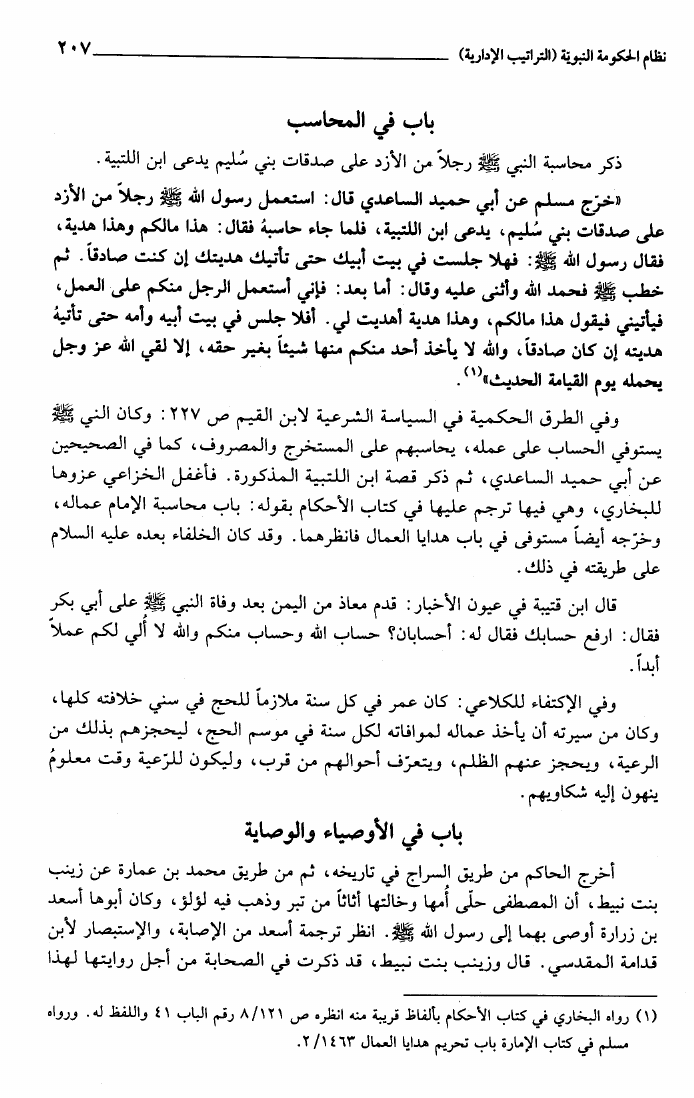 نظام الحكومة النبوية (التراتيب الإدارية) ٢٠٧
باب في المحاسب
ذكر محاسبة النبي ﷺ رجلاً من الأزد على صدقات بني سُليم يدعى ابن اللتبية.
«خرّج مسلم عن أبي حميد الساعدي قال: استعمل رسول الله ﷺ رجلاً من الأزد
على صدقات بني سُليم، يدعى ابن اللتبية، فلما جاء حاسبهُ فقال: هذا مالكم وهذا هدية،
فقال رسول الله ﷺ: فهلا جلست في بيت أبيك حتى تأتيك هديتك إن كنت صادقاً. ثم
خطب ﷺ فحمد الله وأثنى عليه وقال: أما بعد: فإني أستعمل الرجل منكم على العمل،
فيأتيني فيقول هذا مالكم، وهذا هدية أهديت لي. أفلا جلس في بيت أبيه وأمه حتى تأتيهُ
هديته إن كان صادقاً، والله لا يأخذ أحد منكم منها شيئاً بغير حقه، إلا لقي الله عز وجل
يحمله يوم القيامة الحديث»(١).
وفي الطرق الحكمية في السياسة الشرعية لابن القيم ص ٢٢٧: وكان الني ﷺ
يستوفي الحساب على عمله، يحاسبهم على المستخرج والمصروف، كما في الصحيحين
عن أبي حميد الساعدي، ثم ذكر قصة ابن اللتبية المذكورة. فأغفل الخزاعي عزوها
للبخاري، وهي فيها ترجم عليها في كتاب الأحكام بقوله: باب محاسبة الإمام عماله،
وخرّجه أيضاً مستوفى في باب هدايا العمال فانظرهما. وقد كان الخلفاء بعده عليه السلام
على طريقته في ذلك.
قال ابن قتيبة في عيون الأخبار: قدم معاذ من اليمن بعد وفاة النبي ﷺ على أبي بكر
فقال: ارفع حسابك فقال له: أحسابان؟ حساب الله وحساب منكم والله لا أُلي لكم عملاً
أبداً.
وفي الإكتفاء للكلاعي: كان عمر في كل سنة ملازماً للحج في سني خلافته كلها،
وكان من سيرته أن يأخذ عماله لموافاته لكل سنة في موسم الحج، ليحجزهم بذلك من
الرعية، ويحجز عنهم الظلم، ويتعرّف أحوالهم من قرب، وليكون للرّعية وقت معلومُ
ينهون إليه شكاويهم.
باب في الأوصياء والوصاية
أخرج الحاكم من طريق السراج في تاريخه، ثم من طريق محمد بن عمارة عن زينب
بنت نبيط، أن المصطفى حلّى أُمها وخالتها أثاثاً من تبر وذهب فيه لؤلؤ، وكان أبوها أسعد
بن زرارة أوصى بهما إلى رسول الله ﷺ. انظر ترجمة أسعد من الإصابة، والإستبصار لأبن
قدامة المقدسي. قال وزينب بنت نبيط، قد ذكرت في الصحابة من أجل روايتها لهذا
(١) رواه البخاري في كتاب الأحكام بألفاظ قريبة منه انظره ص ٨/١٢١ رقم الباب ٤١ واللفظ له. ورواه
مسلم في كتاب الإمارة باب تحريم هدايا العمال ٢/١٤٦٣.